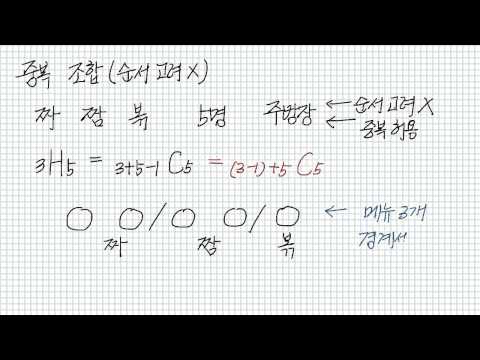 중복 조합 (순서 고려 X)
짜 짬 볶 5명 주방장 ← 순서 고려 X
← 중복 허용
3H5 = 3+5-1C5 = (3-1)+5C5
○ ○ / ○ ○ / ○ ← 메뉴 3개
짜 짬 볶 경계서